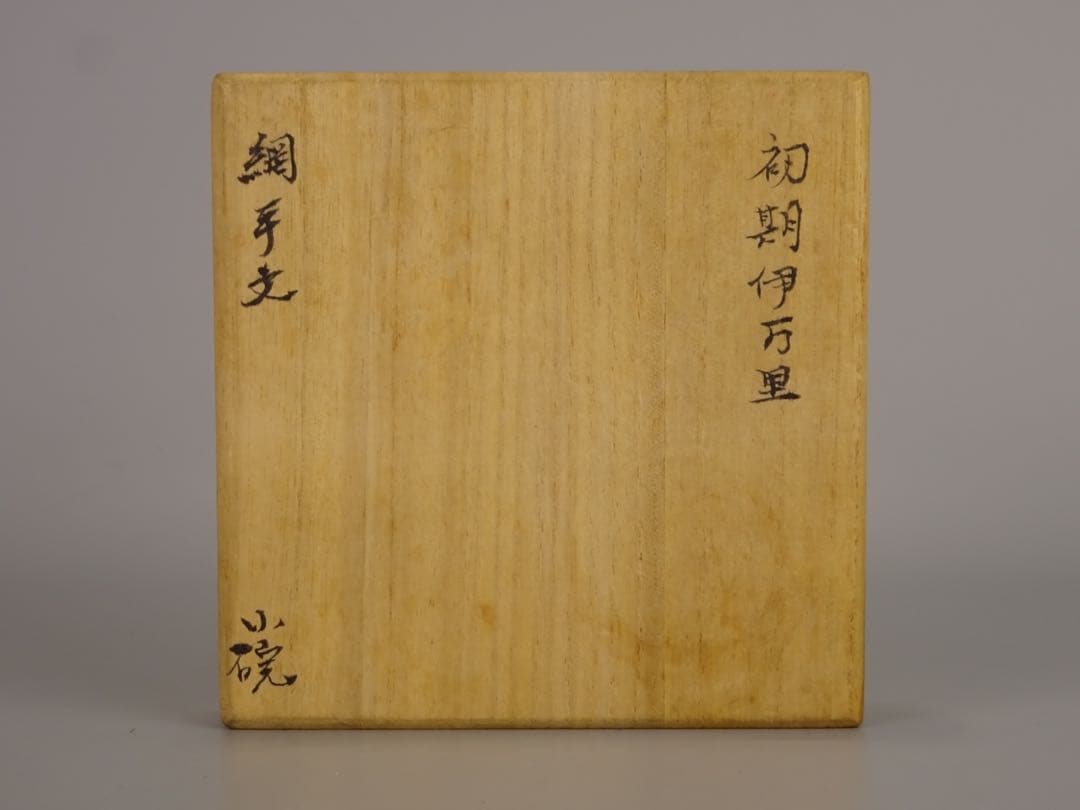 初期伊万里
網手文
小碗